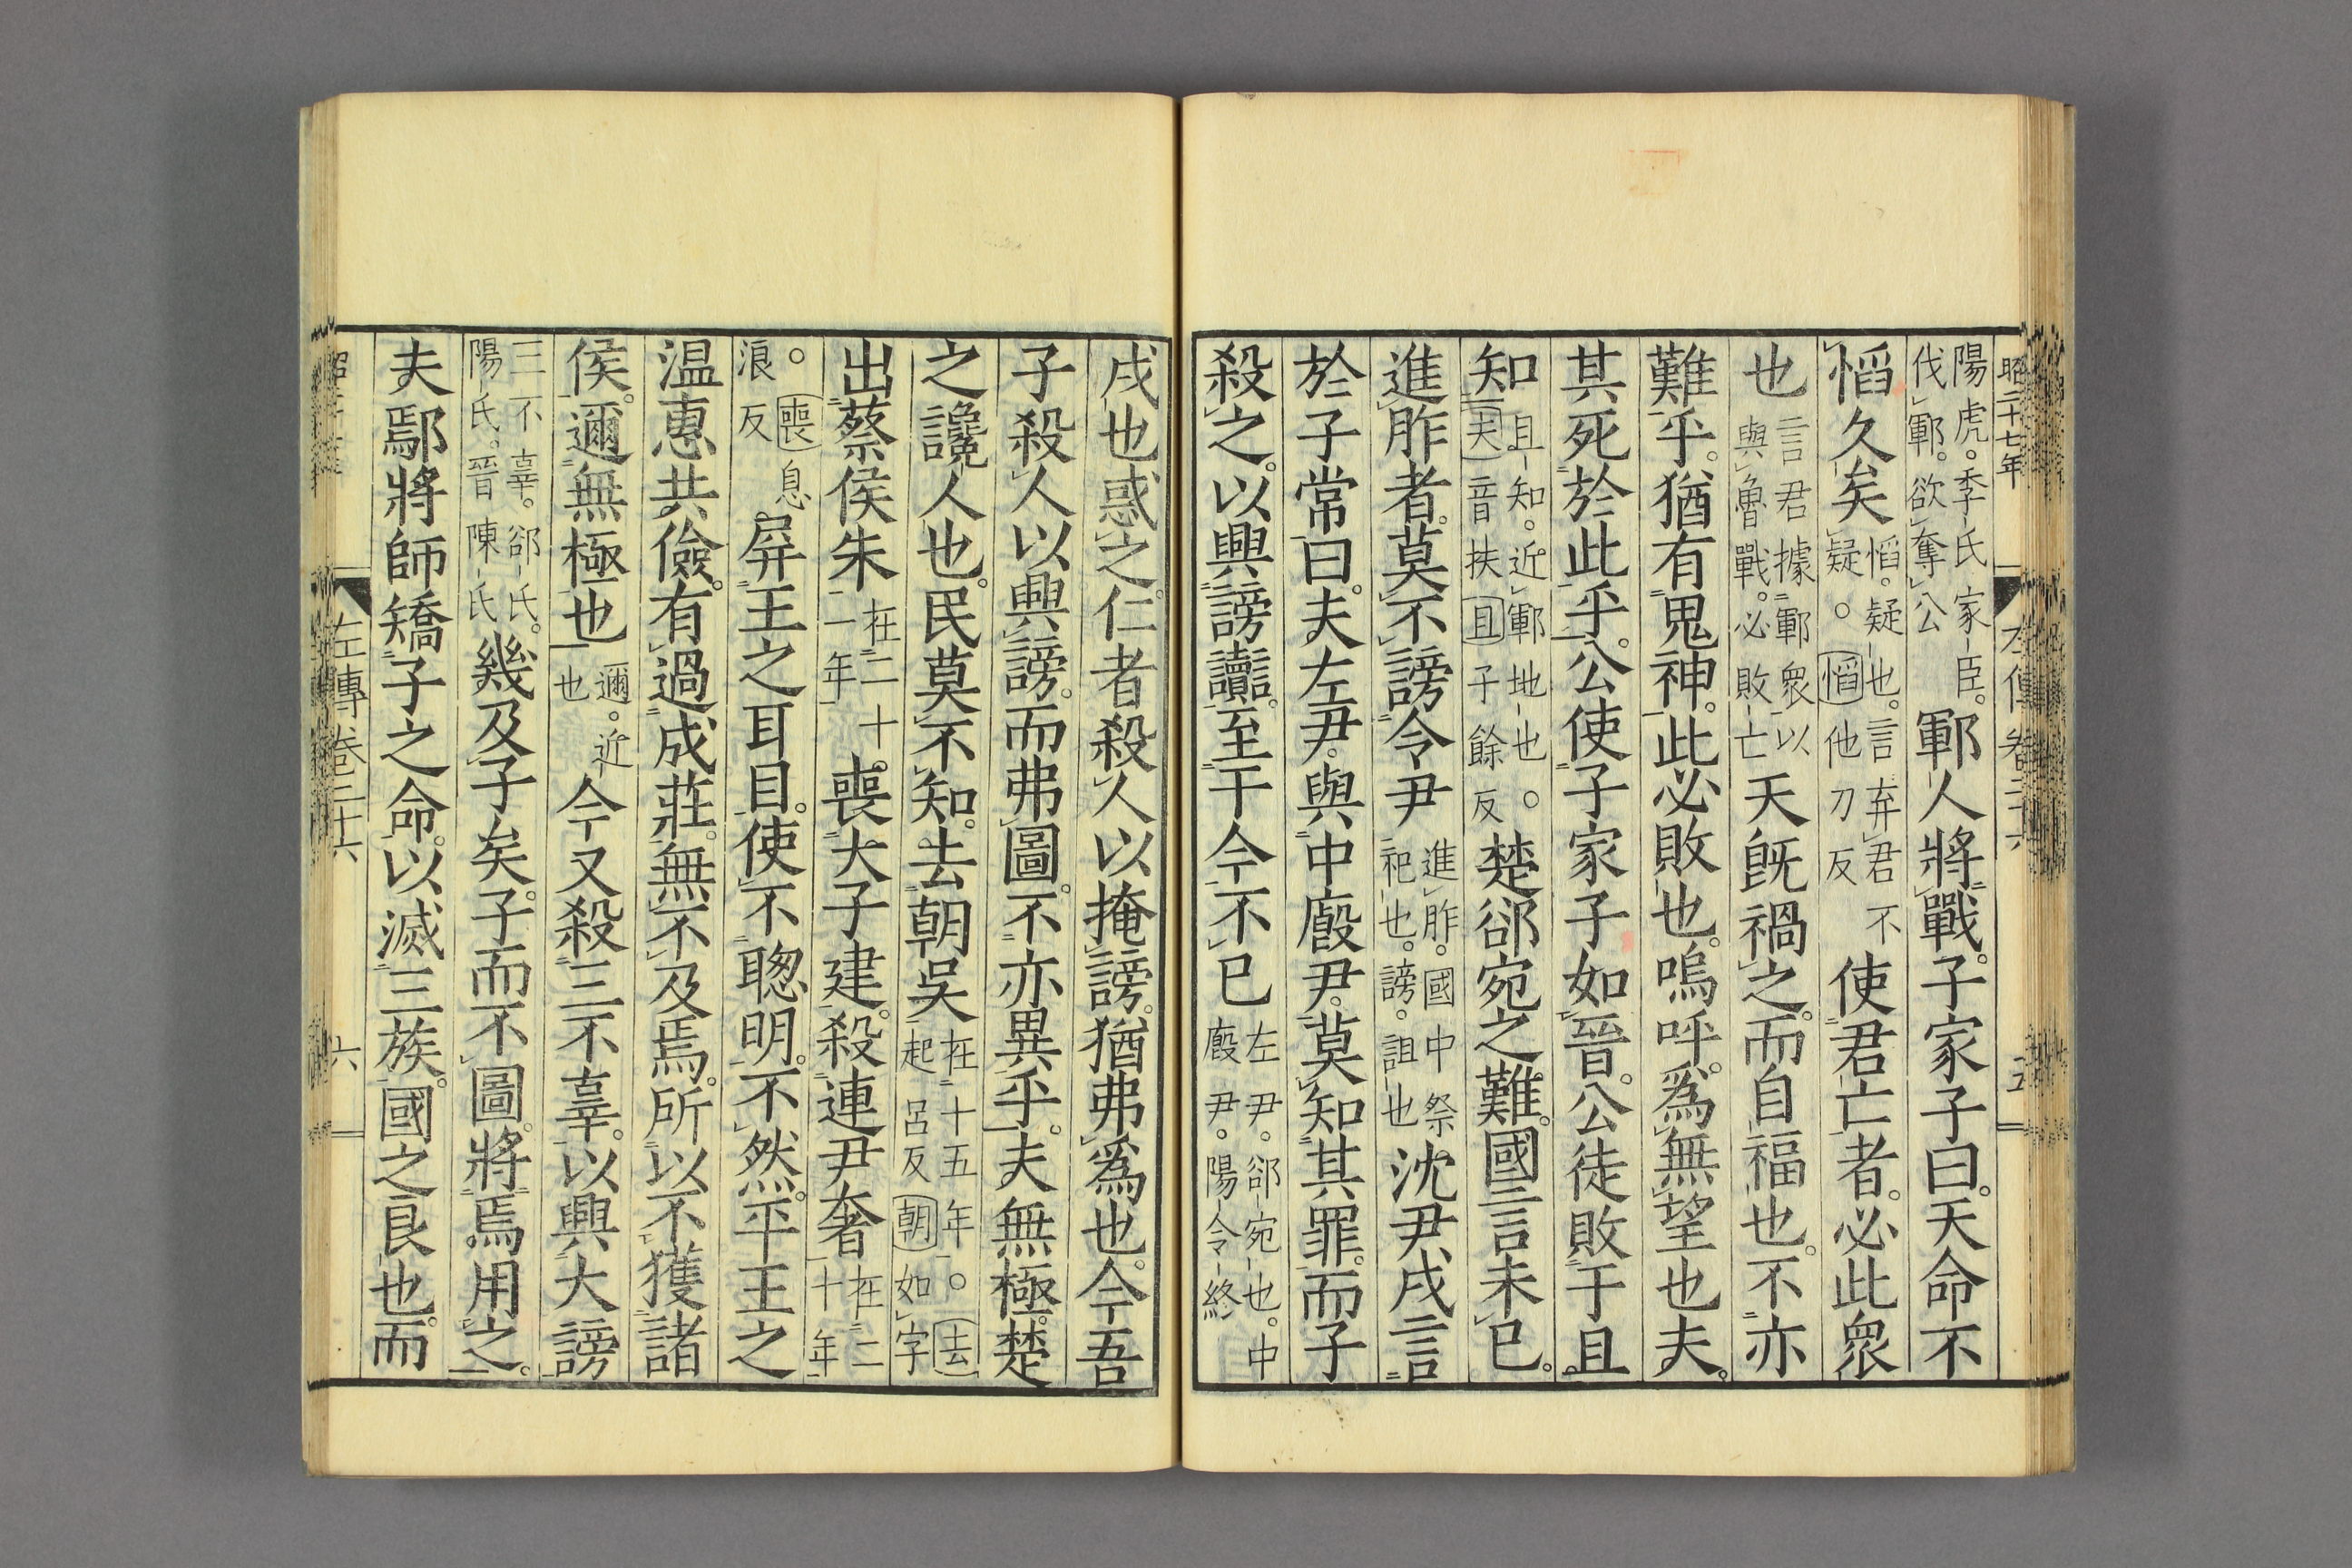 昭二十七年　左傳卷二十六　五
陽虎。季氏家臣。伐鄆。欲奪公鄆人將戰。子家子曰。天命不
慆久矣慆。疑也。言弃君不疑。。慆他刀反使君亡者。必此衆
也言君據鄆衆以與魯戰。必敗亡天既禍之。而自福也。不亦
難乎。猶有鬼神。此必敗也。嗚呼。爲無望也夫。
其死於此乎。公使子家子如晉。公徒敗于且
知且知。近鄆地也。。夫音扶且子餘反楚郤宛之難。國言未已。
進胙者。莫不謗令尹進胙。國中祭祀也。謗。詛也沈尹戌言
於子常曰。夫左尹。與中廄尹。莫知其罪。而子
殺之。以興謗讟。至于今不已左尹。郤宛也。中廄尹。陽令終
戌也惑之。仁者殺人以掩謗。猶弗爲也。今吾
子殺人以興謗。而弗圖。不亦異乎。夫無極。楚
之讒人也。民莫不知。去朝吳在十五年。。去起呂反朝如字
出蔡侯朱在二十一年。喪大子建。殺連尹奢在二十年
。喪息浪反屏王之耳目。使不聰明。不然。平王之
温惠共儉。有過成莊。無不及焉。所以不獲諸
侯。邇無極也邇。近也今又殺三不辜。以興大謗
三不辜。郤氏。陽氏。晉陳氏幾及子矣。子而不圖。將焉用之。
夫鄢將師矯子之命。以滅三族。國之良也。而
左傳卷二十六　六